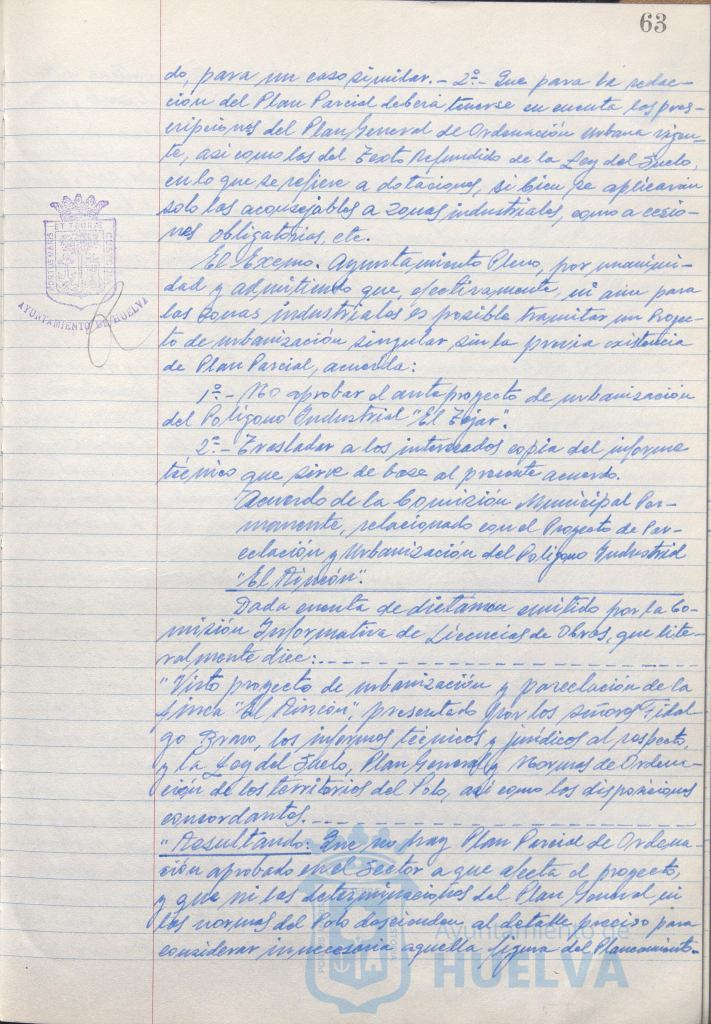 63
do, para un caso similar.- 2º.- Que para la redac-
ción del Plan Parcial deberá tenerse en cuenta las pres-
cripciones del Plan General de Ordenación urbana vigen-
te, así como las del Texto Refundido de la Ley del Suelo,
en lo que se refiere a dotaciones, si bien se aplicarán
solo las aconsejables a zonas industriales, como a cesio-
nes obligatorias, etc.
El Excmo. Ayuntamiento Pleno, por unanimi-
dad y admitiendo que, efectivamente, ni aún para
las zonas industriales es posible tramitar un Proyec-
to de urbanización singular sin la previa existencia
de Plan Parcial, acuerda:
1º.- No aprobar el anteproyecto de urbanización
del Polígono Industrial "El Tejar".
2º.- Trasladar a los interesados copia del informe
técnico que sirve de base al presente acuerdo.
Acuerdo de la Comisión Municipal Per-
manente, relacionado con el Proyecto de Par-
celación y Urbanización del Polígono Industrial
"El Rincón".
Dada cuenta de dictámen emitido por la Co-
misión Informativa de Licencias de Obras, que lite-
ralmente dice:
"Visto proyecto de urbanización y parcelación de la
finca "El Rincón", presentado por los señores Fidal-
go Bravo, los informes técnicos y jurídicos al respecto,
y la Ley del Suelo, Plan General y Normas de Ordena-
ción de los territorios del Polo, así como las disposiciones
concordantes.
"Resultando: Que no hay Plan Parcial de Ordena-
ción aprobado en el Sector a que afecta el proyecto,
y que ni las determinaciones del Plan General, ni
las normas del Polo descienden al detalle preciso para
considerar innecesaria aquella figura del Planeamiento.
PORTUS MARIS ET TERRAE CUSTODIA
AYUNTAMIENTO DE HUELVA
Ayuntamiento de
HUELVA